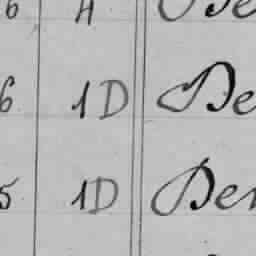 6 A Be
6 1D Be
5 1D Ber